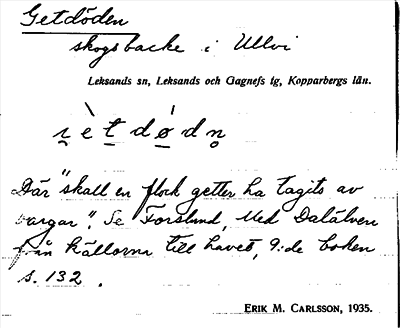 Getdöden
skogsbacke i Ullvi
Leksands sn, Leksands och Gagnefs tg, Kopparbergs län.
Där "skall en flock getter ha tagits av
vargar". Se Forslund, Med Dalälven
från källorna till havet, 9:de boken
s. 132.
ERIK M. CARLSSON, 1935.